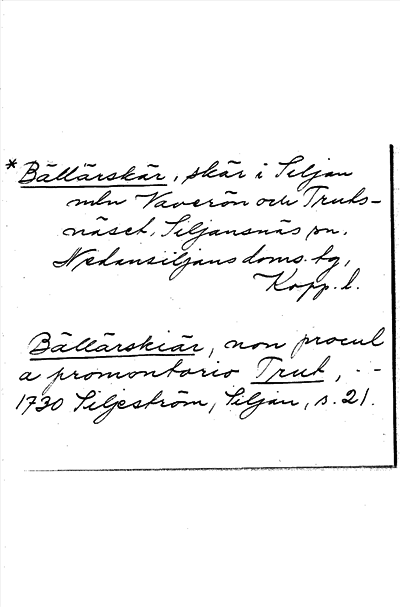 * Bällärskär, skär i Siljan
mln Vaverön och Truts-
näset, Siljansnäs sn.
Nedansiljans doms. tg,
Kopp. l.
Bällärskiär, non procul
a promontorio Trut, --
1730 Siljeström, Siljan, s. 21.